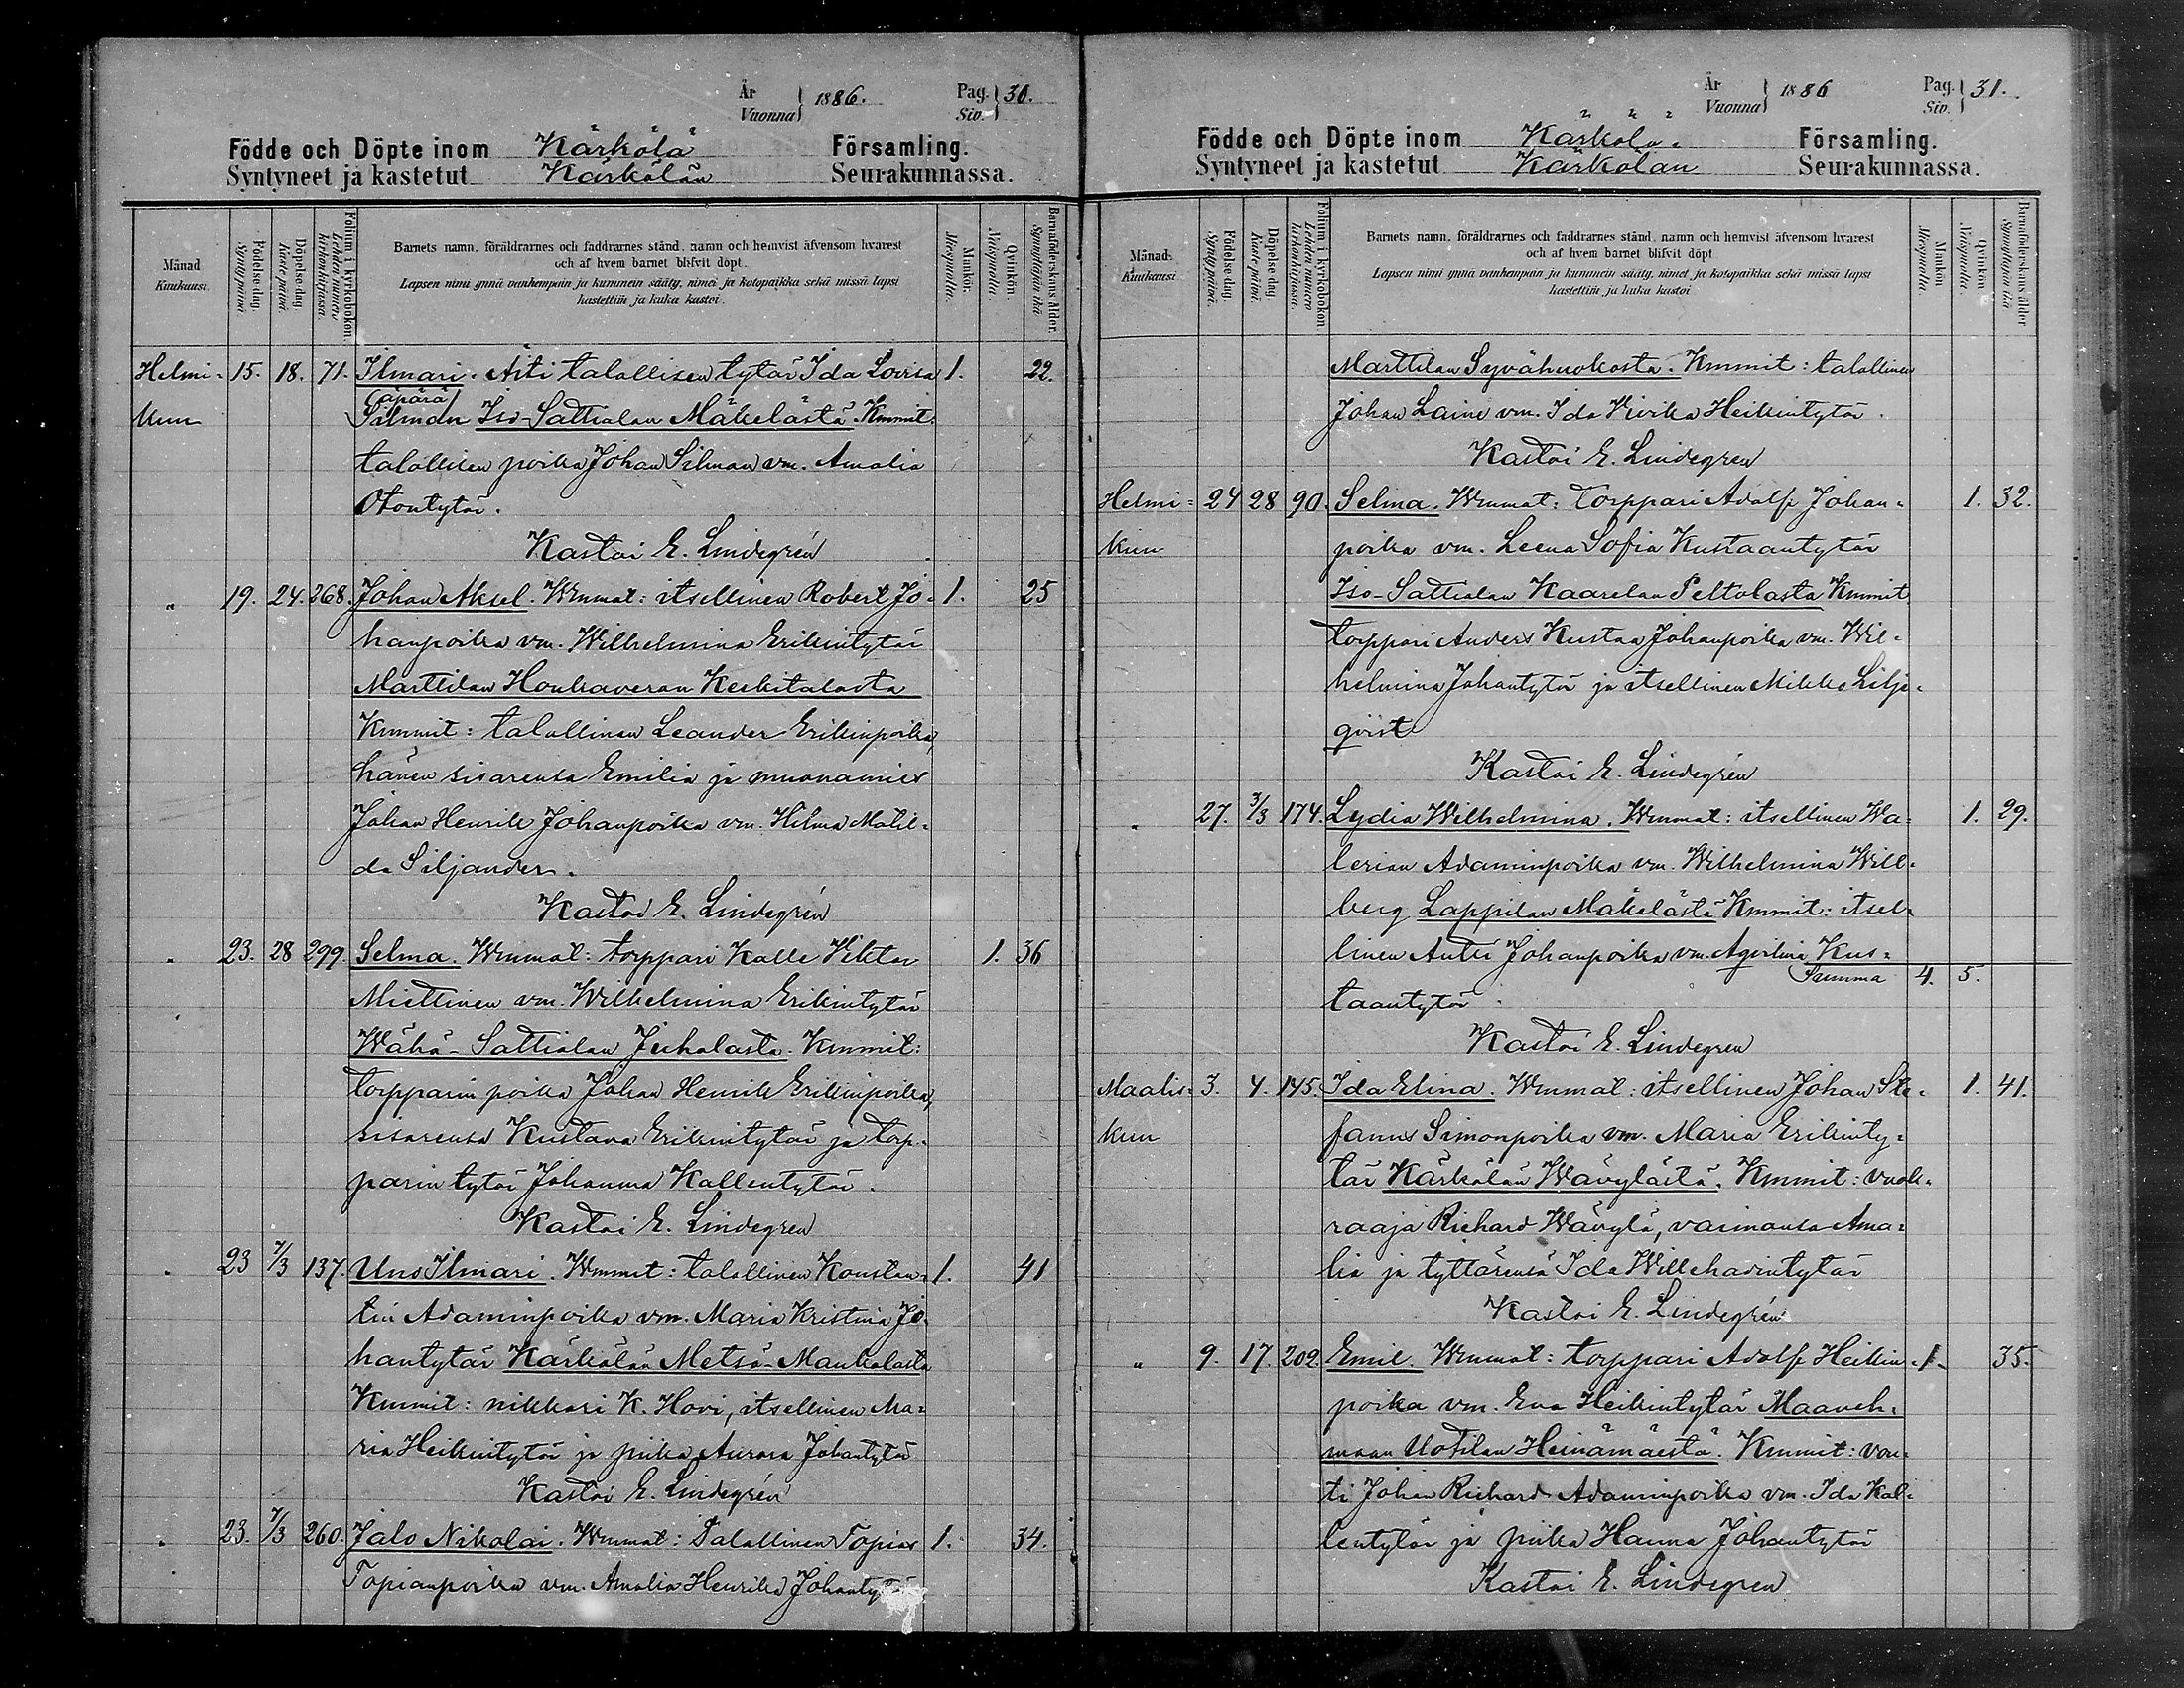 År
Vuonna } 1886. Pag.
Siv. } 30.
Födde och Döpte inom Kärkölä Församling.
Syntyneet ja kastetut Kärkölän Seurakunnassa.
Månad
Kuukausi.
Födelse-dag.
Syntypäivä.
Döpelse-dag.
Kaste päivä.
Folium i kyrkobokon.
Lehden numero kirkonkirjassa.
Barnets namn, föräldrarnes och faddrarnes stånd, namn och hemvist äfvensom hvarest
och af hvem barnet blifvit döpt.
Lapsen nimi ynnä vanhempain ja kummein sääty, nimet ja kotopaikka sekä missä lapsi
kastettiin ja kuka kastoi.
Mankön.
Miespuolia.
Qvinkön.
Naispuolia.
Barnaföderskans ålder.
Synnyttäjän ikä
Helmi- 15. 18. 71. Ilmari. Äiti talollisen tytär Ida Lovisa 1. 22.
(äpärä)
kuu Silman Iso-Sattialan Mäkelästä. Kummit:
talollisen poika Johan Silman vm. Amalia
Otontytär.
Kastoi E. Lindegrén
" 19. 24. 268. Johan Aksel. Wmmat: itsellinen Robert Jo- 1. 25
hanpoika vm. Wilhelmina Erikintytär
Marttilan Honkaveran Keskitalosta
Kummit: talollinen Leander Erikinpoika,
hänen sisarensa Emilia ja muonamies
Johan Henrik Johanpoika vm. Hilma Matil-
da Siljander.
Kastoi E. Lindegrén
" 23. 28 299. Selma. Wmmat: torppari Kalle Viktor 1. 36
Miettinen vm. Wilhelmina Erikintytär
Wähä-Sattialan Juhalasta. Kummit:
torpparin poika Johan Henrik Erikinpoika,
sisarensa Kustava Erikintytär ja torp-
parin tytär Johanna Kallentytär.
Kastoi E. Lindegren
" 23 7/3 137. Uno Ilmari. Wmmat: talollinen Konstan- 1. 41
tin Adaminpoika vm. Maria Kristina Jo-
hantytär Kärkölän Metsä-Mankolasta
Kummit: nikkari K. Hovi, itsellinen Ma-
ria Heikintytär ja piika Aurora Johantytär
Kastoi E. Lindegrén
" 23. 7/3 260. Jalo Nikolai. Wmmat: Talollinen Topias 1. 34.
Topianpoika vm. Amalia Henrika Johantytär
År
Vuonna } 1886 Pag.
Siv. } 31.
Födde och Döpte inom Kärkölä Församling.
Syntyneet ja kastetut Kärkölän Seurakunnassa.
Månad
Kuukausi
Födelse-dag.
Synty päivä.
Döpelse-dag
Kaste päivä.
Folium i kyrkobokon
Lehden numero kirkonkirjassa.
Barnets namn, föräldrarnes och faddrarnes stånd, namn och hemvist äfvensom hvarest
och af hvem barnet blifvit döpt
Lapsen nimi ynnä vanhempain ja kummein sääty, nimet ja kotopaikka sekä missä lapsi
kastettiin ja kuka kastoi
Mankön
Miespuolia.
Qvinkön
Naispuolia.
Barnaföderskans ålder
Synnyttäjän ikä
Marttilan Syvähuokosta. Kummit: talollinen
Johan Laine vm. Ida Vivika Heikintytär.
Kastoi E. Lindegren
Helmi- 24 28 90. Selma. Wmmat: Torppari Adolf Johan- 1. 32.
kuu poika vm. Leena Sofia Kustaantytär
Iso-Sattialan Kaarelan Peltolasta Kummit
torppari Anders Kustaa Johanpoika vm. Wil-
helmina Johantytär ja itsellinen Mikko Lilje-
qvist
Kastoi E. Lindegrén
" 27. 3/3 174. Lydia Wilhelmina. Wmmat: itsellinen Wa- 1. 29.
lerian Adaminpoika vm. Wilhelmina Will-
berg Lappilan Mäkelästä Kummit: itsel-
linen Antti Johanpoika vm. Aqvilina Kus-
Summa 4. 5.
taantytär
Kastoi E. Lindegren
Maalis- 3. 4. 145. Ida Elina. Wmmat: itsellinen Johan Ste- 1. 41.
kuu fanus Simonpoika vm. Maria Erikinty-
tär Kärkölän Wävylästä. Kummit: vuok-
raaja Richard Wävylä, vaimonsa Ama-
lia ja tyttärensä Ida Willehadintytär
Kastoi E. Lindegrén
" 9. 17. 202. Emil. Wmmat: torppari Adolf Heikin- 1. 35.
poika vm. Eva Heikintytär Maaveh-
maan Uotilan Heinämäestä. Kummit: vou-
ti Johan Richard Adaminpoika vm. Ida Kal-
lentytär ja piika Hanna Johantytär
Kastoi E. Lindegren